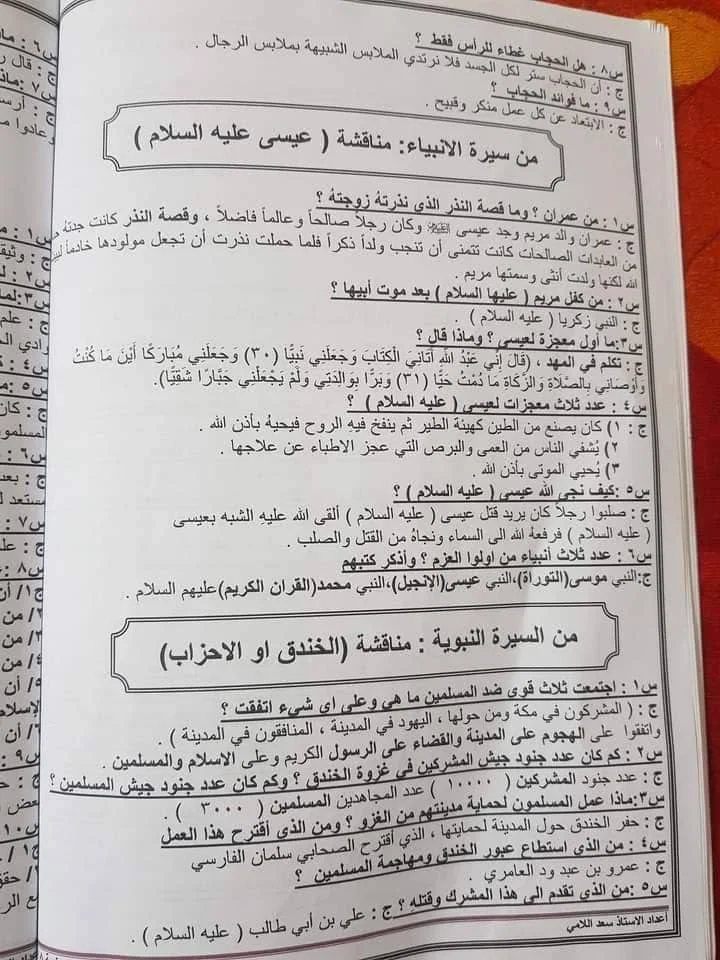 س٨ : هل الحجاب غطاء للرأس فقط ؟
ج : أن الحجاب ستر لكل الجسد فلا نرتدي الملابس الشبيهة بملابس الرجال .
س٩ : ما فوائد الحجاب ؟
ج : الابتعاد عن كل عمل منكر وقبيح .
من سيرة الانبياء: مناقشة ( عيسى عليه السلام )
س١ : من عمران ؟ وما قصة النذر الذي نذرته زوجته ؟
ج : عمران والد مريم وجد عيسى وكان رجلاً صالحاً وعالماً فاضلاً ، وقصة النذر كانت جدته
من العابدات الصالحات كانت تتمنى أن تنجب ولداً ذكراً فلما حملت نذرت أن تجعل مولودها خادماً
الله لكنها ولدت أنثى وسمتها مريم .
س٢ : من كفل مريم ( عليها السلام ) بعد موت أبيها ؟
ج : النبي زكريا ( عليه السلام ) .
س٣:ما أول معجزة لعيسى ؟ وماذا قال ؟
ج : تكلم في المهد ، (قَالَ إِنِّي عَبْدُ اللَّهِ آتَانِيَ الْكِتَابَ وَجَعَلَنِي نَبِيًّا (٣٠) وَجَعَلَنِي مُبَارَكًا أَيْنَ مَا كُنْتُ
وَأَوْصَانِي بِالصَّلَاةِ وَالزَّكَاةِ مَا دُمْتُ حَيًّا (٣١) وَبَرًّا بِوَالِدَتِي وَلَمْ يَجْعَلْنِي جَبَّارًا شَقِيًّا).
س٤ : عدد ثلاث معجزات لعيسى ( عليه السلام ) ؟
ج : ١) كان يصنع من الطين كهيئة الطير ثم ينفخ فيهِ الروح فيحيهُ بأذن الله .
٢) يُشفي الناس من العمى والبرص التي عجز الاطباء عن علاجها .
٣) يُحيي الموتى بأذن الله .
س٥ :كيف نجى الله عيسى ( عليه السلام ) ؟
ج : صلبوا رجلاً كان يريد قتل عيسى ( عليه السلام ) ألقى الله عليهِ الشبه بعيسى
( عليه السلام ) فرفعهُ الله الى السماء ونجاهُ من القتل والصلب .
س٦ : عدد ثلاث أنبياء من اولوا العزم ؟ وأذكر كتبهم
ج:النبي موسى(التوراة)،النبي عيسى(الإنجيل)،النبي محمد(القران الكريم)عليهم السلام .
من السيرة النبوية : مناقشة (الخندق او الاحزاب)
س١ : اجتمعت ثلاث قوى ضد المسلمين ما هي وعلى اي شيء اتفقت ؟
ج : ( المشركون في مكة ومن حولها ، اليهود في المدينة ، المنافقون في المدينة ) .
واتفقوا على الهجوم على المدينة والقضاء على الرسول الكريم وعلى الاسلام والمسلمين .
س٢ : كم كان عدد جنود جيش المشركين في غزوة الخندق ؟ وكم كان عدد جنود جيش المسلمين ؟
ج : عدد جنود المشركين ( ١٠٠٠٠ ) عدد المجاهدين المسلمين ( ٣٠٠٠ ) .
س٣:ماذا عمل المسلمون لحماية مدينتهم من الغزو ؟ ومن الذي أقترح هذا العمل
ج : حفر الخندق حول المدينة لحمايتها ، الذي أقترح الصحابي سلمان الفارسي
س٤ : من الذي استطاع عبور الخندق ومهاجمة المسلمين ؟
ج : عمرو بن عبد ود العامري .
س٥ :من الذي تقدم الى هذا المشرك وقتلهِ ؟ ج : علي بن أبي طالب ( عليه السلام ) .
أعداد الاستاذ سعد اللامي